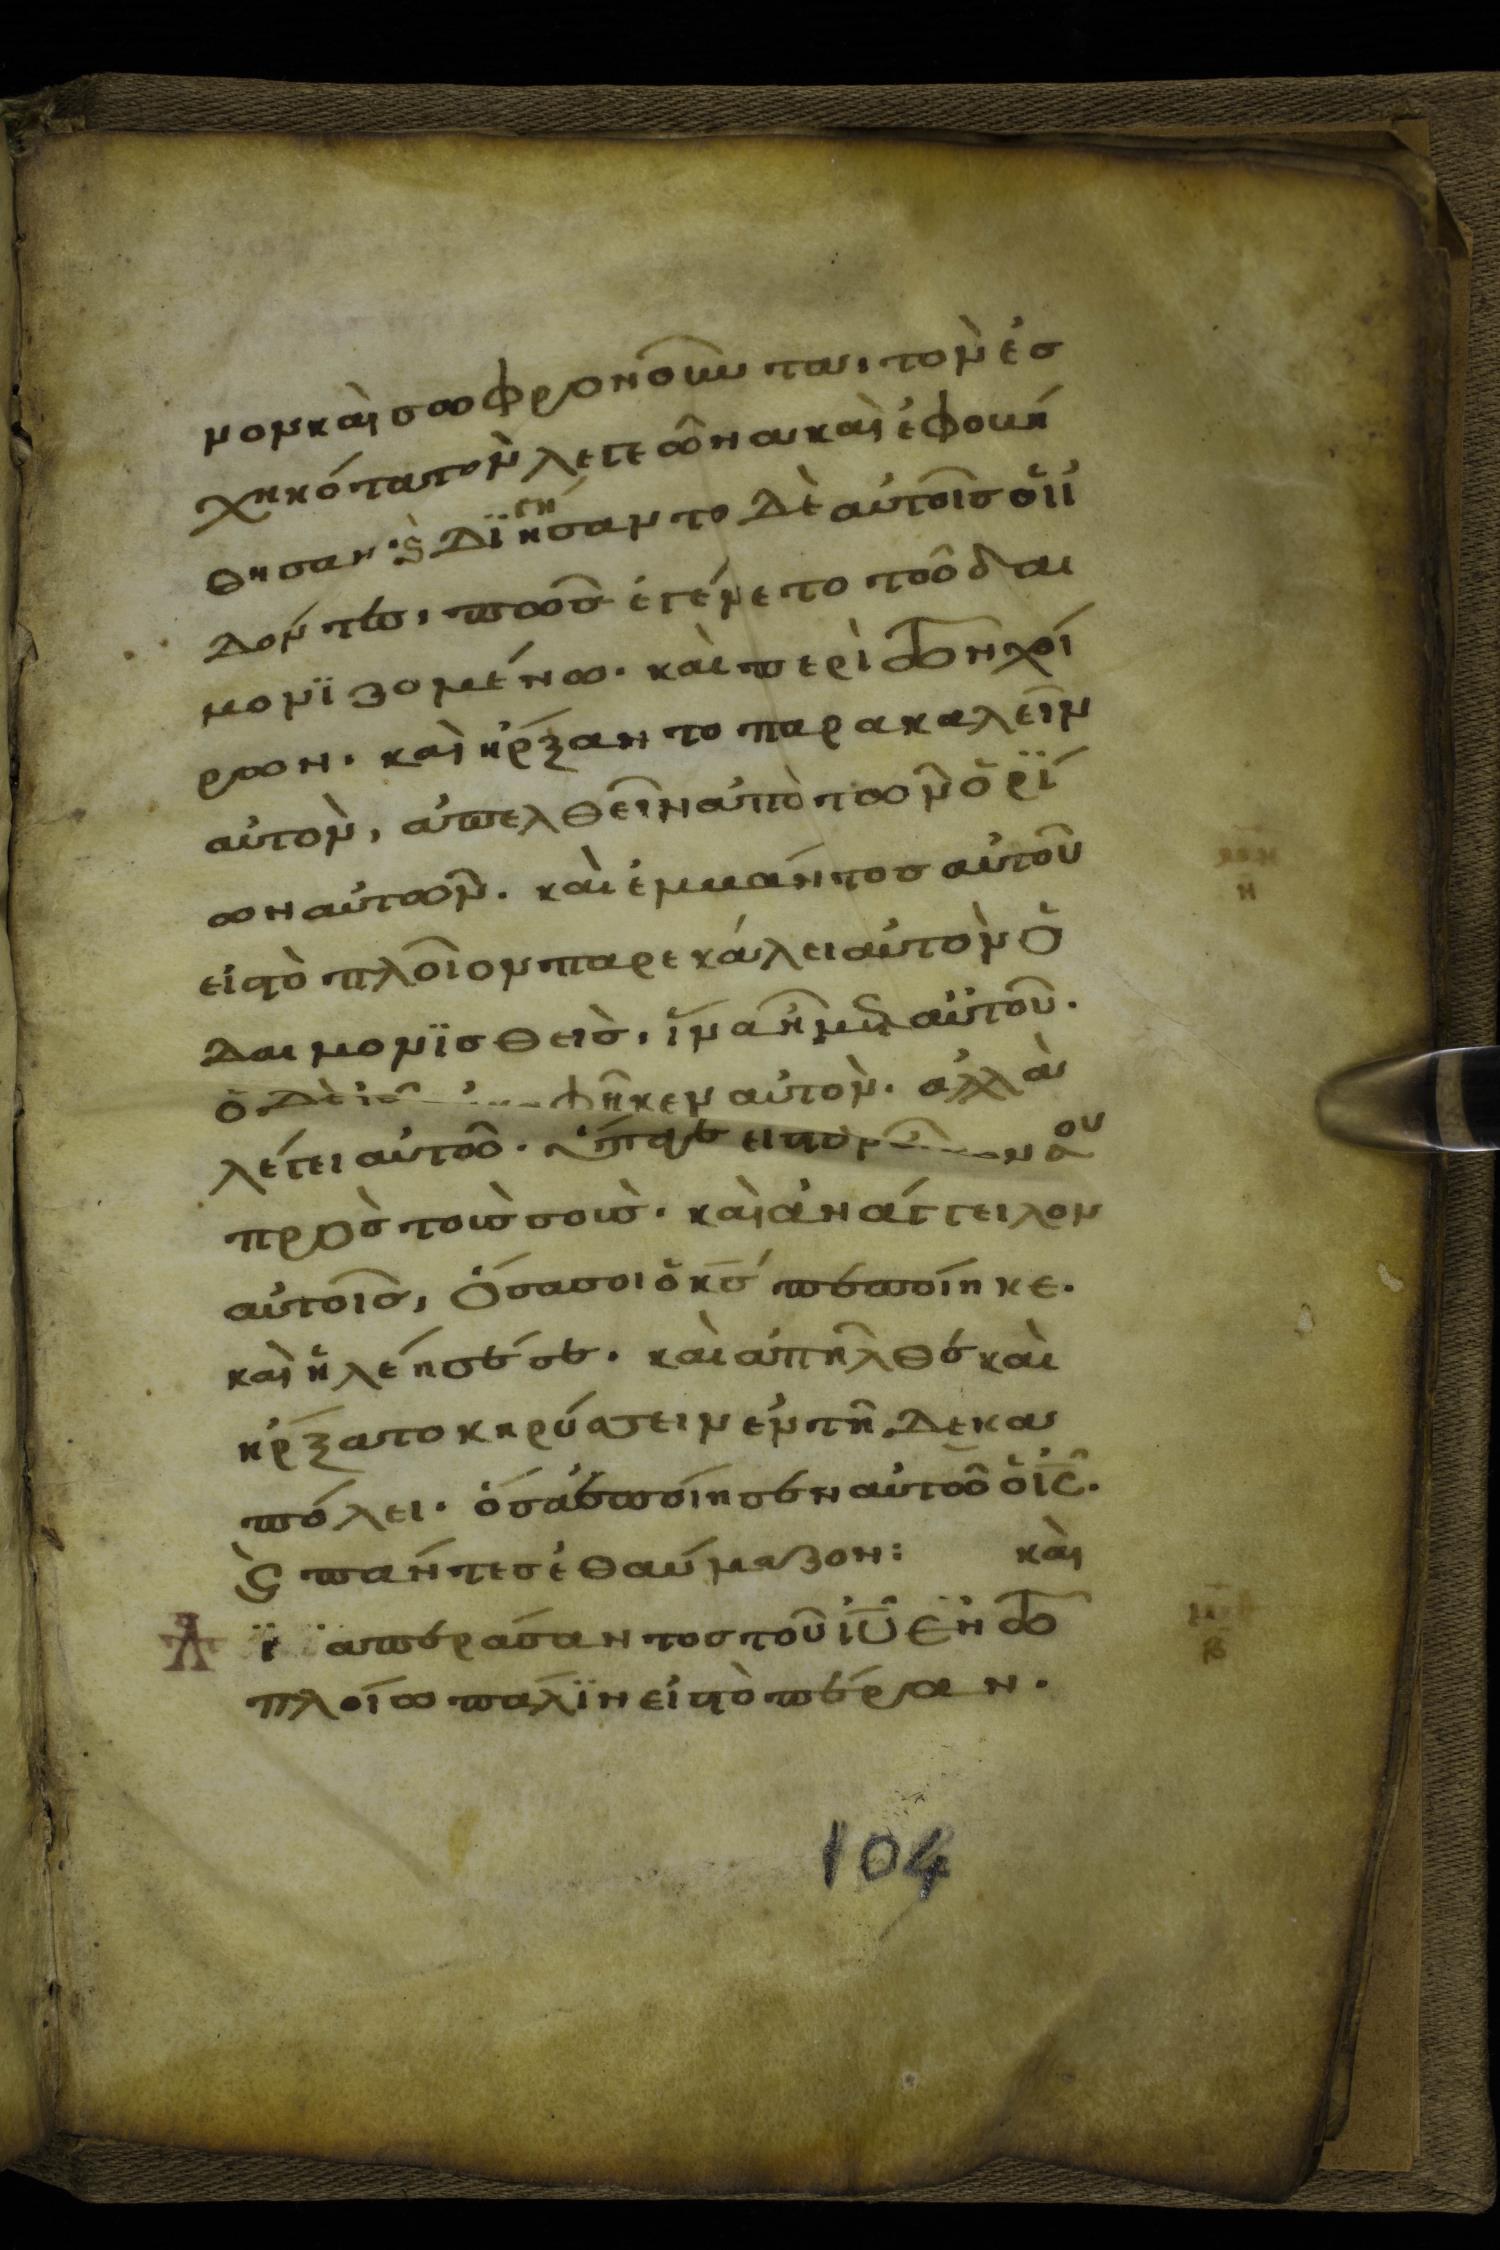 μον καὶ σωφρονοῦντα, τὸν ἐσ
χηκότα τὸν λεγεῶνα καὶ ἐφοβή
θησαν· ϗ διηγήσαντο δὲ αὐτοῖς οἱ ἰ
δόντες, πῶς ἐγένετο τῶ δαι
μονϊζομένω. καὶ περὶ τῶν χοί
ρων. καὶ ἤρξαντο παρακαλεῖν
αὐτὸν, ἀπελθεῖν ἀπὸ τῶν ὁρΐ
ων αὐτῶν. καὶ ἐμβάντος αὐτοῦ
εἰς τὸ πλοῖον παρεκάλει αὐτὸν ὁ
δαιμονϊσθεὶς, ἵνα ἦ μετ αὐτοῦ.
ὁ δὲ ἀφῆκεν αὐτὸν. ἀλλὰ
λέγει αὐτῶ. ὕπαγε εἰς τὸν σου
πρὸς τοὺς σοὺς. καὶ ἀνάγγειλον
αὐτοῖς, ὅσα σοι ὁ κς πεποίηκε.
καὶ ἠλέησέ σε. καὶ ἀπῆλθε καὶ
ἤρξατο κηρύσσειν ἐν τῆ Δεκα
πόλει. ὅσα ἐποίησεν αὐτῶ ὁ ις.
ϗ πάντες ἐθαύμαζον: καὶ
διαπεράσαντος τοῦ ιυ ἐν τῶ
πλοίω πάλϊν εἰς τὸ πέραν.
104